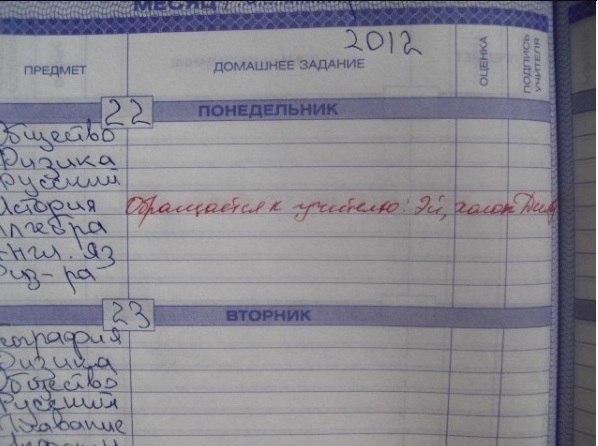 МЕСЯЦ
2012
ПРЕДМЕТ
ДОМАШНЕЕ ЗАДАНИЕ
ОЦЕНКА
ПОДПИСЬ УЧИТЕЛЯ
22 ПОНЕДЕЛЬНИК
Общество
Физика
Русский
История Обращается к учителю: Эй, холоп
Алгебра
Англ. яз
Физ-ра
23 ВТОРНИК
География
Физика
Общество
Русский
Плавание